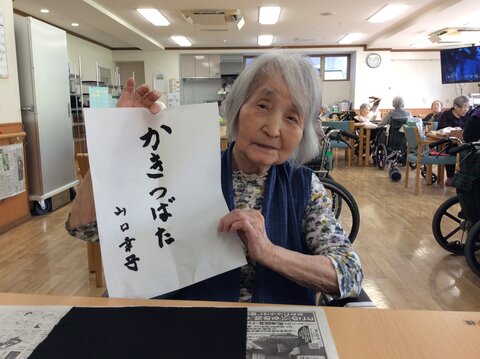 かきつばた
山口幸子